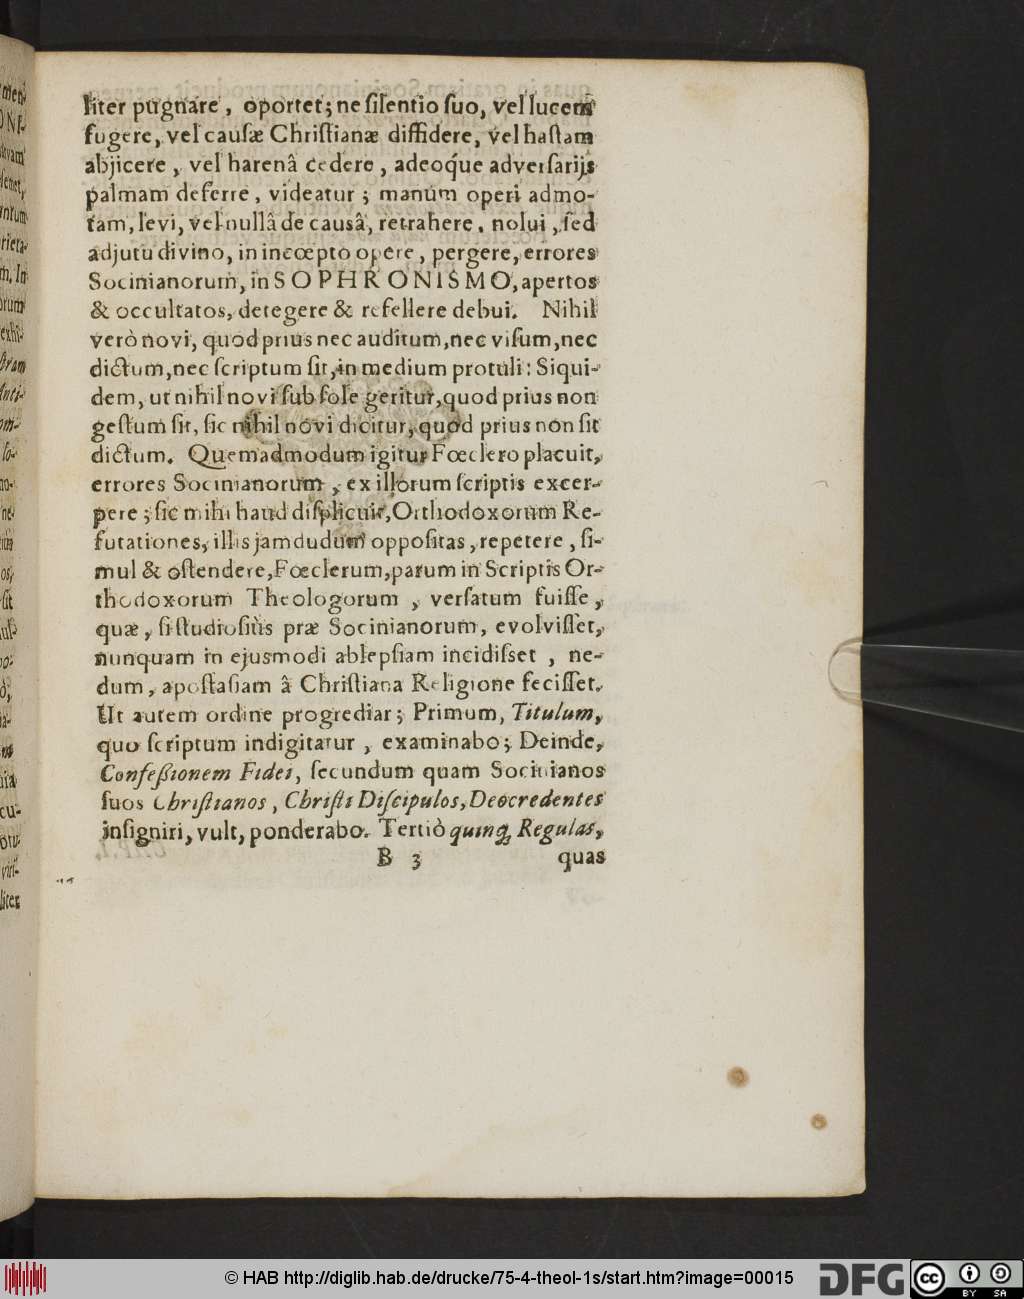 liter pugnare, oportet; ne ſilentio ſuo, vel lucem
fugere, vel cauſæ Chriſtianæ diffidere, vel haſtam
abjicere, vel harenâ cedere, adeoq́ue adverſarijs
palmam deferre, videatur; manum operi admo-
tam, levi, vel nullâ de cauſâ, retrahere, nolui, ſed
adjutu divino, in incœpto opere, pergere, errores
Socinianorum, in SOPHRONISMO, apertos
& occultatos, detegere & refellere debui. Nihil
verò novi, quod prius nec auditum, nec viſum, nec
dictum, nec ſcriptum ſit, in medium protuli: Siqui-
dem, ut nihil novi ſub ſole geritur, quod prius non
geſtum ſit, ſic nihil novi dicitur, quod prius non ſit
dictum. Quemadmodum igitur Fœclero placuit,
errores Socinianorum, ex illorum ſcriptis excer-
pere; ſic mihi haud diſplicuit, Orthodoxorum Re-
futationes, illis jamdudum oppoſitas, repetere, ſi-
mul & oſtendere, Fœclerum, parum in Scriptis Or-
thodoxorum Theologorum, verſatum fuiſſe,
quæ, ſi ſtudioſiùs præ Socinianorum, evolviſſet,
nunquam in ejusmodi ablepſiam incidiſset, ne-
dum, apoſtaſiam â Chriſtiana Religione feciſſet.
Ut autem ordine progrediar; Primum, Titulum,
quo ſcriptum indigitatur, examinabo; Deinde,
Confeßionem Fidei, ſecundum quam Socinianos
ſuos Chriſtianos, Chriſti Diſcipulos, Deocredentes
inſigniri, vult, ponderabo. Tertiò quinq; Regulas,
B 3 quas
© HAB http://diglib.hab.de/drucke/75-4-theol-1s/start.htm?image=00015
DFG
cc BY SA